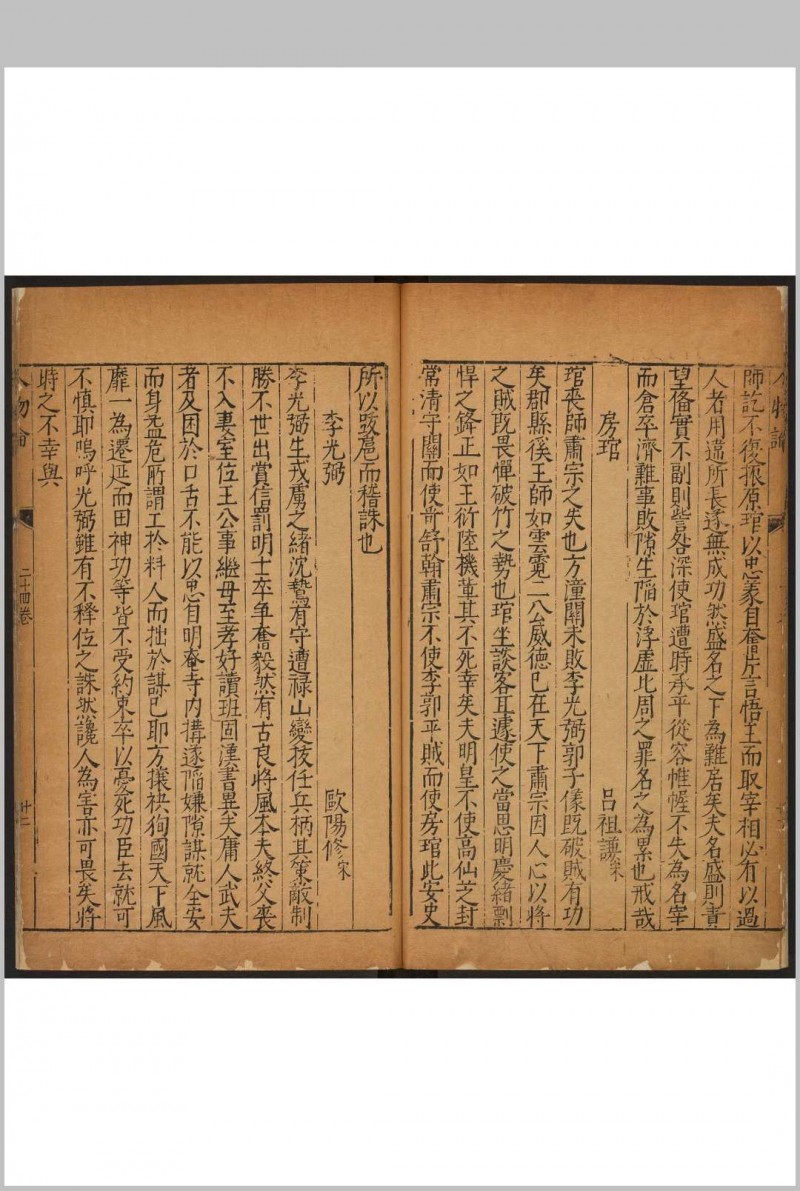 師訖不復振原琯以忠義自奮片言悟主而取宰相必有以過
人者用違所長遂無成功然盛名之下為難居矣夫名盛則責
望備實不副則訾咎深使琯遭時承平從容帷幄不失為名宰
而倉卒濟難事敗隙生陷於浮虛比周之罪名之為累也戒哉
房琯 呂祖謙宋
琯喪師肅宗之失也方潼關未敗李光弼郭子儀既破賊有功
矣郡縣徯王師如雲霓二公威德已在天下肅宗因人心以將
之賊既畏憚破竹之勢也琯坐談客耳遽使之當思明慶緒剽
悍之鋒正如王衍陸機輩其不死幸矣夫明皇不使高仙芝封
常清守關而使哥舒翰肅宗不使李郭平賊而使房琯此安史
所以跋扈而稽誅也
李光弼 歐陽修宋
李光弼生戎虜之緒沈鷙有守遭祿山變拔任兵柄其策敵制
勝不世出賞信罰明士卒爭奮毅然有古良將風本夫終父喪
不入妻室位王公事繼母至孝好讀班固漢書異夫庸人武夫
者及困於口舌不能以忠自明奄寺內搆遂陷嫌隙謀就全安
而身益危所謂工於料人而拙於謀己耶方攘袂徇國天下風
靡一為遷延而田神功等皆不受約束卒以憂死功臣去就可
不慎耶嗚呼光弼雖有不釋位之誅然讒人為害亦可畏矣將
時之不幸與
人物論 二十四卷 廿二